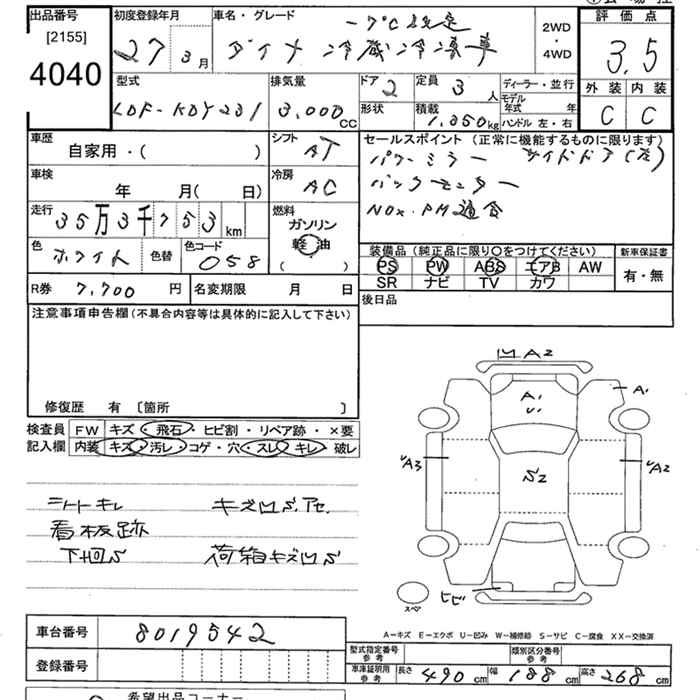 出品番号
[2155]
4040
初度登録年月
27 3月
車名・グレード
-7℃設定
ダイナ 冷蔵冷凍車
2WD
・
4WD
評価点
3.5
外装 内装
C C
型式
LDF-KDY231
排気量
3,000cc
ドア
2
形状
定員
3人
積載
1,350kg
ディーラー・並行
モデル年式 年
ハンドル 左・右
車歴
自家用・( )
シフト
AT
車検
年 月( 日)
冷房
AC
走行
35万3千753km
燃料
ガソリン
軽油
( )
色
ホワイト
色替
色コード
058
R券 7,700円
名変期限 月 日
セールスポイント(正常に機能するものに限ります)
パワーミラー サイドドア(左)
バックモニター
NOx・PM適合
装備品(純正品に限り○をつけてください)
PS PW ABS エアB AW
SR ナビ TV カワ
新車保証書
有・無
後日品
注意事項申告欄(不具合内容等は具体的に記入して下さい)
修復歴 有 〔箇所 〕
検査員記入欄
FW キズ・飛石・ヒビ割・リペア跡・×要
内装 キズ・汚レ・コゲ・穴・スレ・キレ・破レ
シートキレ キズ凹S.アセ.
看板跡
下廻S 荷箱キズ凹S
凹A2
A1
U
A1
UA3
S2
UA2
ヒビ
スペア
A-キズ E-エクボ U-凹み W-補修跡 S-サビ C-腐食 XX-交換済
車台番号
8019542
登録番号
型式指定番号
参考
類別区分番号
参考
車庫証明用
参考
長さ 490cm 幅 188cm 高さ 268cm
希望出品コーナー